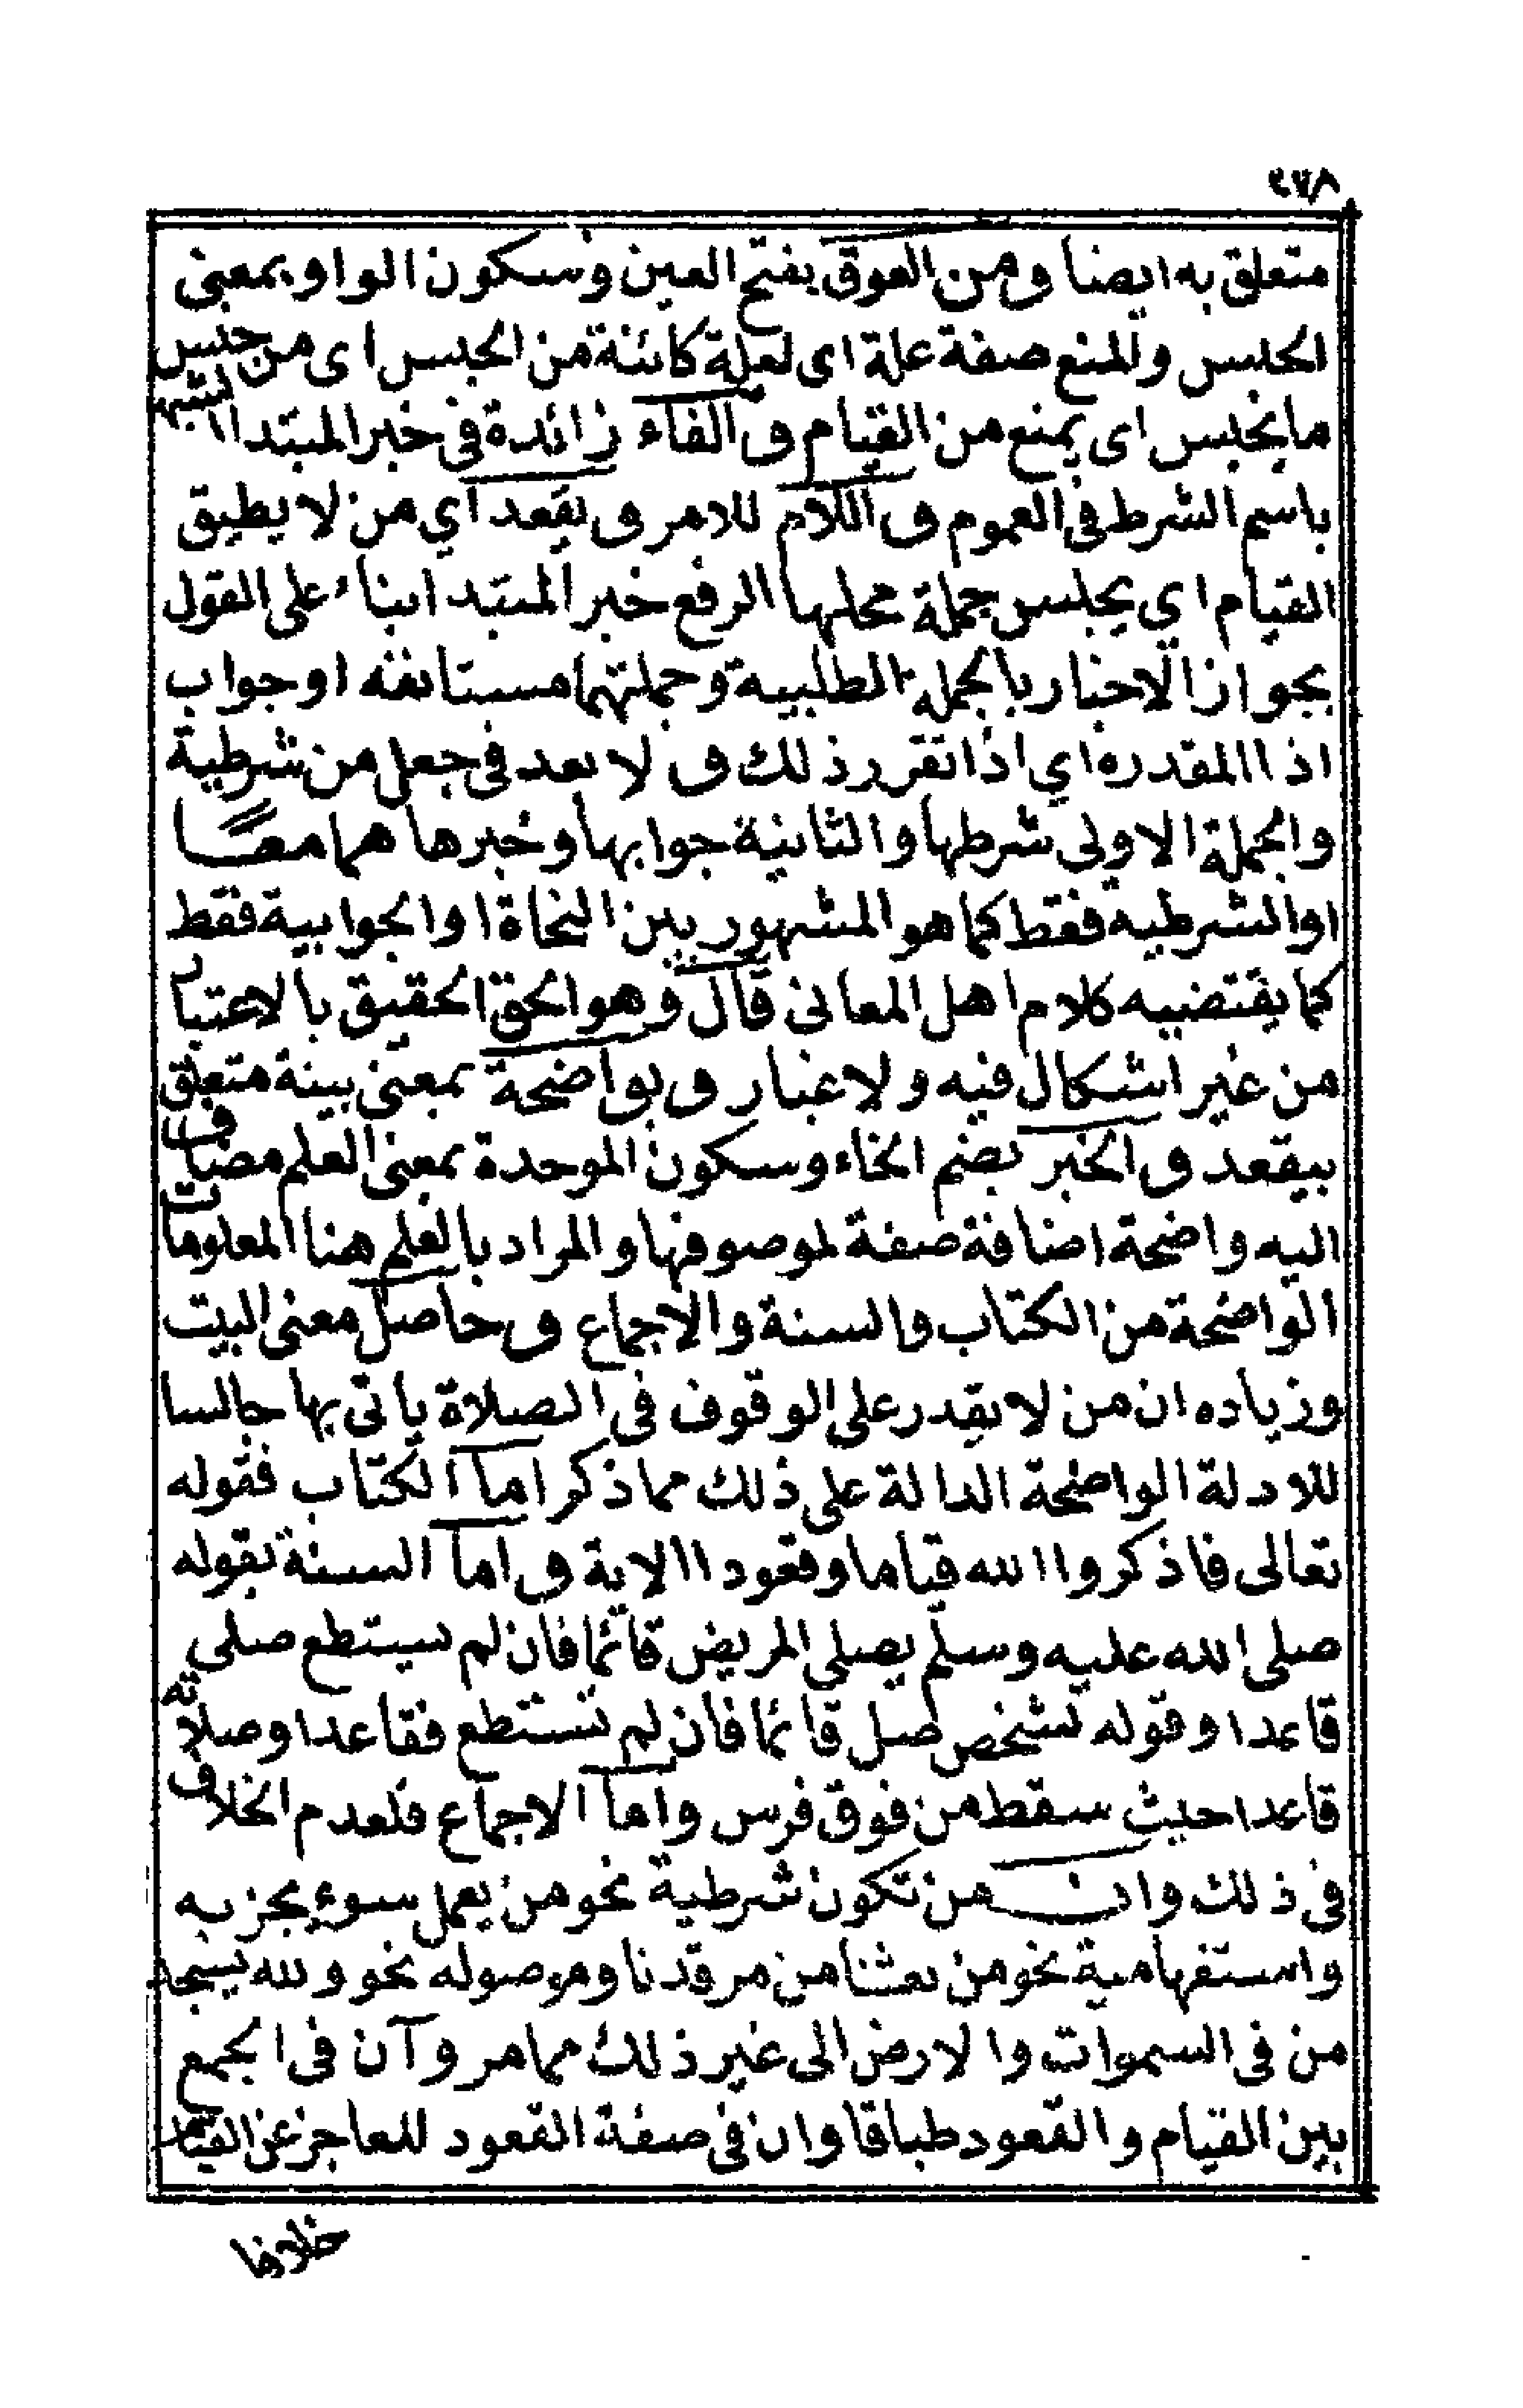 ٢٧٨
متعلق به ايضا و من العوق بفتح العين وسكون الواو بمعنى
الحبس والمنع صفة علة اى لعلة كائنة من الحبس اى من جنس
ما يحبس اى يمنع من القيام و الفاء زائدة فى خبر المبتدا لشبهه
باسم الشرط فى العموم و اللام للامر و يقعد اي من لا يطيق
القيام اي يجلس جملة محلها الرفع خبر المبتدا بناء على القول
بجواز الاخبار بالجملة الطلبية وجملتهما مستانفه او جواب
اذا المقدره اي اذا تقرر ذلك و لا بعد فى جعل من شرطية
والجملة الاولى شرطها والثانية جوابها وخبرها هما معًا
او الشرطيه فقط كما هو المشهور بين النحاة او الجوابية فقط
كما يقتضيه كلام اهل المعانى قال وهو الحق الحقيق بالاعتبار
من غير اشكال فيه ولا غبار و بواضحة بمعنى بينة متعلق
بيقعد و الخبر بضم الخاء وسكون الموحدة بمعنى العلم مضاف
اليه واضحة اضافة صفة لموصوفها والمراد بالعلم هنا المعلومات
الواضحة من الكتاب والسنة والاجماع و حاصل معنى البيت
وزياده ان من لا يقدر على الوقوف فى الصلاة ياتى بها جالسا
للادلة الواضحة الدالة على ذلك مما ذكر اما الكتاب فقوله
تعالى فاذكروا الله قياما وقعودا الاية و اما السنة بقوله
صلى الله عليه وسلم يصلى المريض قائما فان لم يستطع صلى
قاعدا وقوله لشخص صل قائما فان لم تستطع فقاعدا وصلاته
قاعدا حيث سقط من فوق فرس واما الاجماع فلعدم الخلاف
فى ذلك وان من تكون شرطية نحو من يعمل سوء يجز به
واستفهامية نحو من بعثنا من مرقدنا وموصوله نحو ولله يسجد
من فى السموات والارض الى غير ذلك مما مر وآن فى الجمع
بين القيام والقعود طباقا وان فى صفة القعود للعاجز عن القيام
خلافا